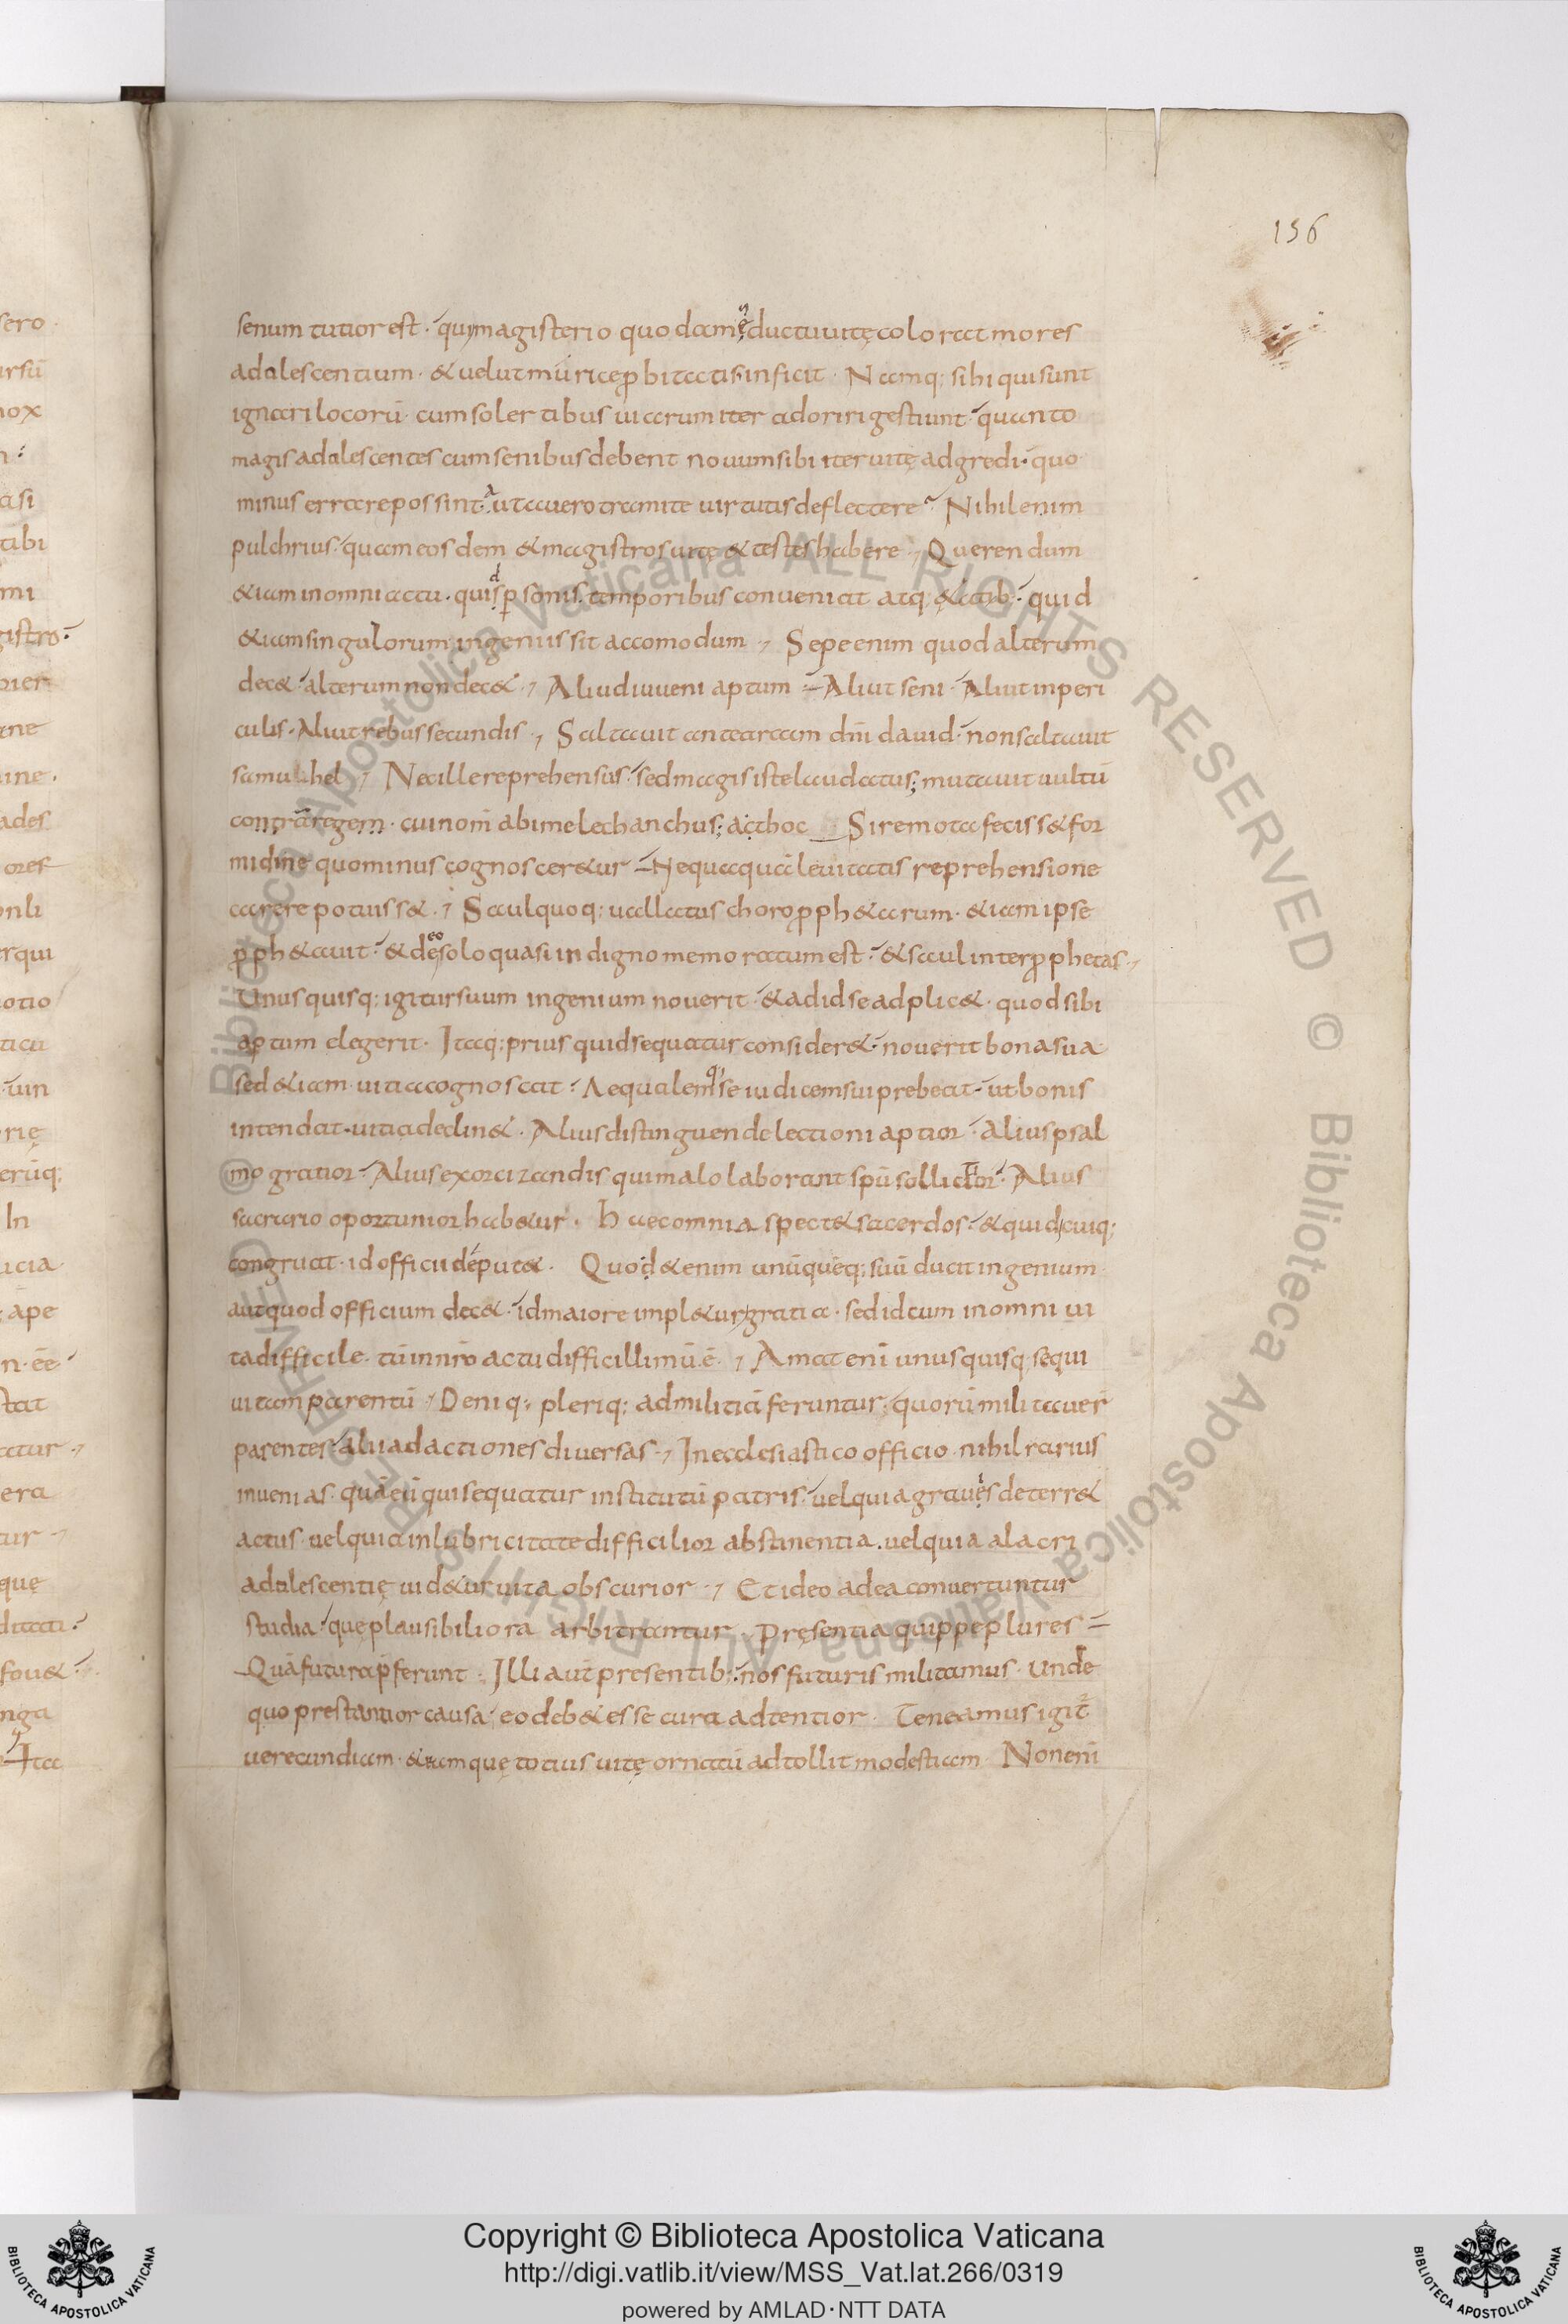 156
senum tutior est · qui magisterio quodam & ductu uitę colorat mores
adolescentium · & uelut murice ꝓbitatis inficit · Namq; sibi qui sunt
ignari locorū · cum solertibus uiarum iter adoriri gestiunt · quanto
magis adolescentes cum senibus debent nouum sibi iter uitę adgredi · quo
minus errare possint · ut a uero tramite uirtutis deflectere · Nihil enim
pulchrius · quam eosdem & magistros uitę & testes habere · Querendum
&iam in omni actu · quid ꝑsonis temporibus conueniat atq; &atib; · quid
&iam singulorum ingeniis sit accomodum · Sepe enim quod alterum
dec& · alterum non dec& · Aliud iuueni aptum · Aliut seni · Aliut in peri
culis · Aliut rebus secundis · Saltauit ante arcam dn̄i dauid · non saltauit
samuhel · Nec ille reprehensus · sed magis iste laudatus; mutauit uultū
contra regem · cui nom̄ abimelech anchus; at hoc Si remota feciss& for
midine quominus cognoscer&ur · Nequaquā leuitatis reprehensione
carere potuiss& · Saul quoq; uallatus choro ꝓph&arum · &iam ipse
ꝓph&auit · & de eo solo quasi indigno memoratum est · & saul inter ꝓphetas ·
Unusquisq; igitur suum ingenium nouerit · & ad id se adplic& · quod sibi
aptum elegerit · Itaq; prius quid sequatur consider& · nouerit bona sua
sed &iam · uitia cognoscat · Aequalemq; se iudicem sui prebeat · ut bonis
intendat · uitia declin& · Alius distinguende lectioni aptior · alius psal
mo gratior · Alius exorcizandis qui malo laborant spū sollicitior · Alius
sacrario oportunior hab&ur · Haec omnia spect& sacerdos · & quid cuiq;
congruat · id officii deput& · Quod &enim unūquēq; suū ducit ingenium
aut quod officium dec& · id maiore impl&ur gratia · sed id cum in omni ui
ta difficile · tū in nr̄o actu difficillimū ē · Amat enī unusquisq; sequi
uitam parentū · Deniq; pleriq; ad militiā feruntur; quorū militauer̄
parentes · alii ad actiones diuersas · In ecclesiastico officio nihil rarius
inuenias · quā eū qui sequatur institutū patris · uel quia grauis deterr&
actus · uel quia in lubrici tate difficilior abstinentia · uel quia alacri
adolescentię uid&ur uita obscurior · Et ideo ad ea conuertuntur
studia · que plausibiliora arbitrantur · Pręsentia quippe plures
Quā futura p̄ferunt · Illi aut̄ presentib; · nos futuris militamus · Unde
quo prestantior causa; eo deb& esse cura adtentior · Teneamus igit̄
uerecundiam · & eam quę totius uitę ornatū adtollit modestiam · Non enī
Copyright © Biblioteca Apostolica Vaticana
http://digi.vatlib.it/view/MSS_Vat.lat.266/0319
powered by AMLAD · NTT DATA
BIBLIOTECA APOSTOLICA VATICANA
BIBLIOTECA APOSTOLICA VATICANA